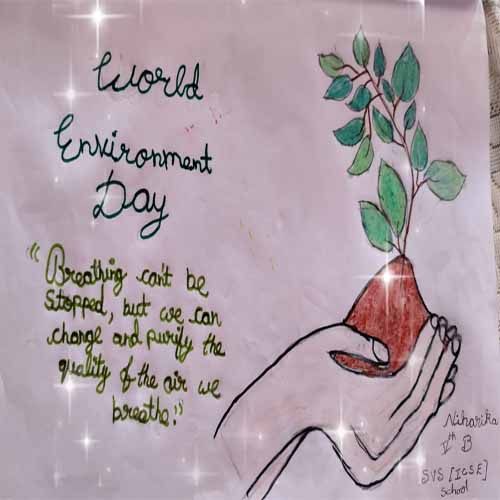 World
Environment
Day
"Breathing can't be
stopped, but we can
change and purify the
quality of the air we
breathe."
Niharika
Vth B
SVS [ICSE]
School